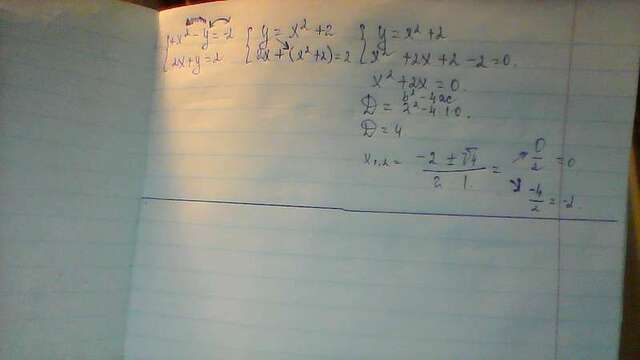 { +x² - y = -2 { y = x² + 2 { y = x² + 2
{ 2x + y = 2 { 2x + (x² + 2) = 2 { x² + 2x + 2 - 2 = 0.
x² + 2x = 0.
b² - 4ac
D = 2² - 4·1·0.
D = 4
x₁,₂ = (-2 ± √4) / (2 · 1) = ↗ 0/2 = 0
↘ -4/2 = -2.